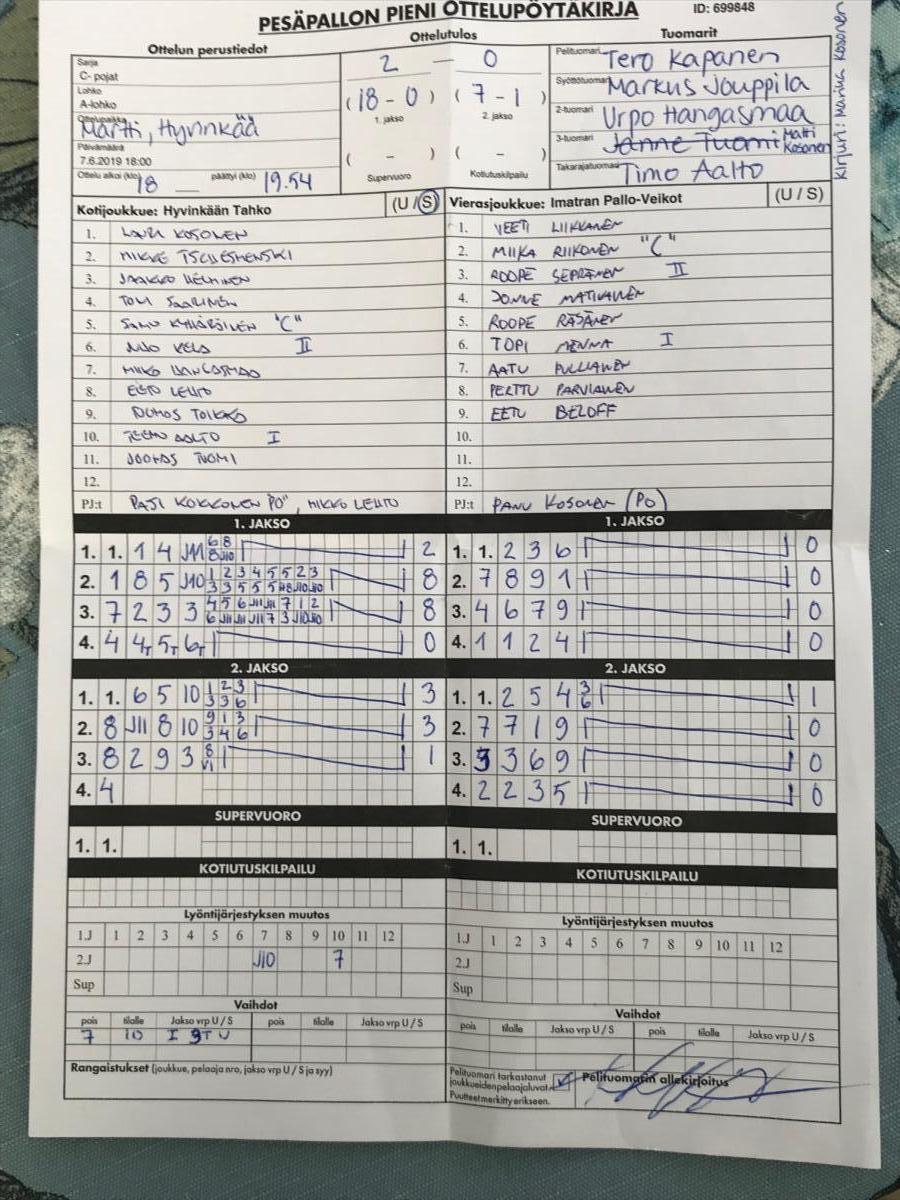 PESÄPALLON PIENI OTTELUPÖYTÄKIRJA
ID: 699848
Ottelun perustiedot
Sarja
C- pojat
Lohko
A-lohko
Ottelupaikka
Martti, Hyvinkää
Päivämäärä
7.6.2019 18:00
Ottelu alkoi (klo) 18 päättyi (klo) 19.54
Ottelutulos
2 — 0
(18 - 0) (7 - 1)
1. jakso 2. jakso
( - ) ( - )
Supervuoro Kotiutuskilpailu
Tuomarit
Pelituomari Tero Kapanen
Syöttötuomari Markus Jouppila
2-tuomari Urpo Hangasmaa
3-tuomari Janne Tuomi Matti Kosonen
Takarajatuomari Timo Aalto
Kirjuri: Marius Kosonen
Kotijoukkue: Hyvinkään Tahko (U / S)
1. LAURI KOSONEN
2. MIKAEL
3. JAAKKO HELMINEN
4. TOMI SAARINEN
5. SAMU "C"
6. VELA II
7. MIKKO HANGASMAA
8. EETO LEHTO
9. TUOMAS TOIKKO
10. TEEMU AALTO I
11. JOONAS TUOMI
12.
PJ:t PASI KOKKONEN "PO", MIKKO LEHTO
Vierasjoukkue: Imatran Pallo-Veikot (U / S)
1. VEETI LIIKKANEN
2. MIIKA RIIKONEN "C"
3. ROOPE SEPPÄNEN II
4. JONNE MATIKAINEN
5. ROOPE RÄSÄNEN
6. TOPI MENNA I
7. AATU PULLIAINEN
8. PERTTU PARVIAINEN
9. EETU BELOFF
10.
11.
12.
PJ:t PANU KOSONEN (PO)
1. JAKSO
1. 1. 1 4 J11 6 8 2
8 J10
2. 1 8 5 J10 1 2 3 4 5 5 2 3 8
3. 7 2 3 3 4 5 6 J11 J11 7 1 2 8
6 J11 J11 J11 7 3 J10 J10
4. 4 4T 5T 6T 0
1. JAKSO
1. 1. 2 3 6 0
2. 7 8 9 1 0
3. 4 6 7 9 0
4. 1 1 2 4 0
2. JAKSO
1. 1. 6 5 10 1 2 3 3
3 3 6
2. 8 J11 8 10 9 1 3 3
3 4 6
3. 8 2 9 3 8 1
VI
4. 4
2. JAKSO
1. 1. 2 5 4 3 1
6
2. 7 7 1 9 0
3. 3 3 6 9 0
4. 2 2 3 5 0
SUPERVUORO
1. 1.
SUPERVUORO
1. 1.
KOTIUTUSKILPAILU
KOTIUTUSKILPAILU
Lyöntijärjestyksen muutos
1.J 1 2 3 4 5 6 7 8 9 10 11 12
2.J J10 7
Sup
Lyöntijärjestyksen muutos
1.J 1 2 3 4 5 6 7 8 9 10 11 12
2.J
Sup
Vaihdot
pois tilalle Jakso vrp U / S pois tilalle Jakso vrp U / S
7 10 I 3T U
Vaihdot
pois tilalle Jakso vrp U / S pois tilalle Jakso vrp U / S
Rangaistukset (joukkue, pelaaja nro, jakso vrp U / S ja syy)
Pelituomari tarkastanut
joukkueiden pelaajaluvat.
Puutteet merkitty erikseen.
Pelituomarin allekirjoitus